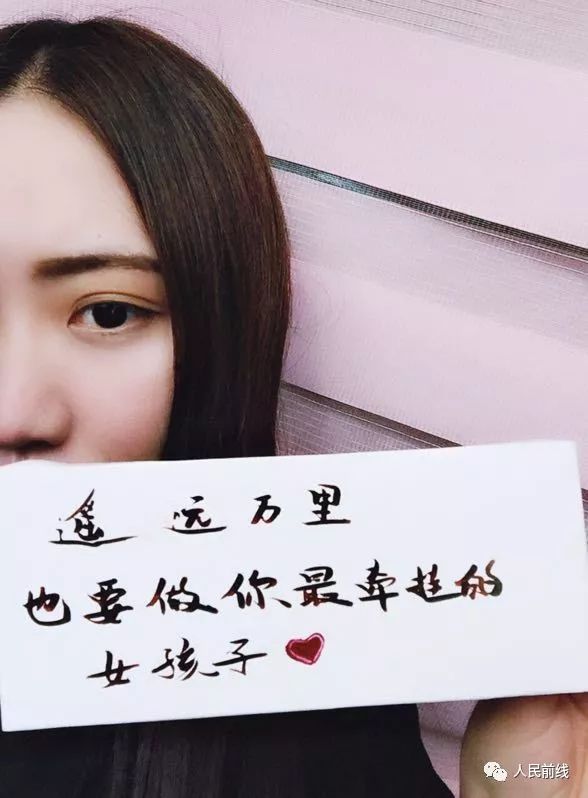 遥远万里
也要做你最牵挂的
女孩子
人民前线